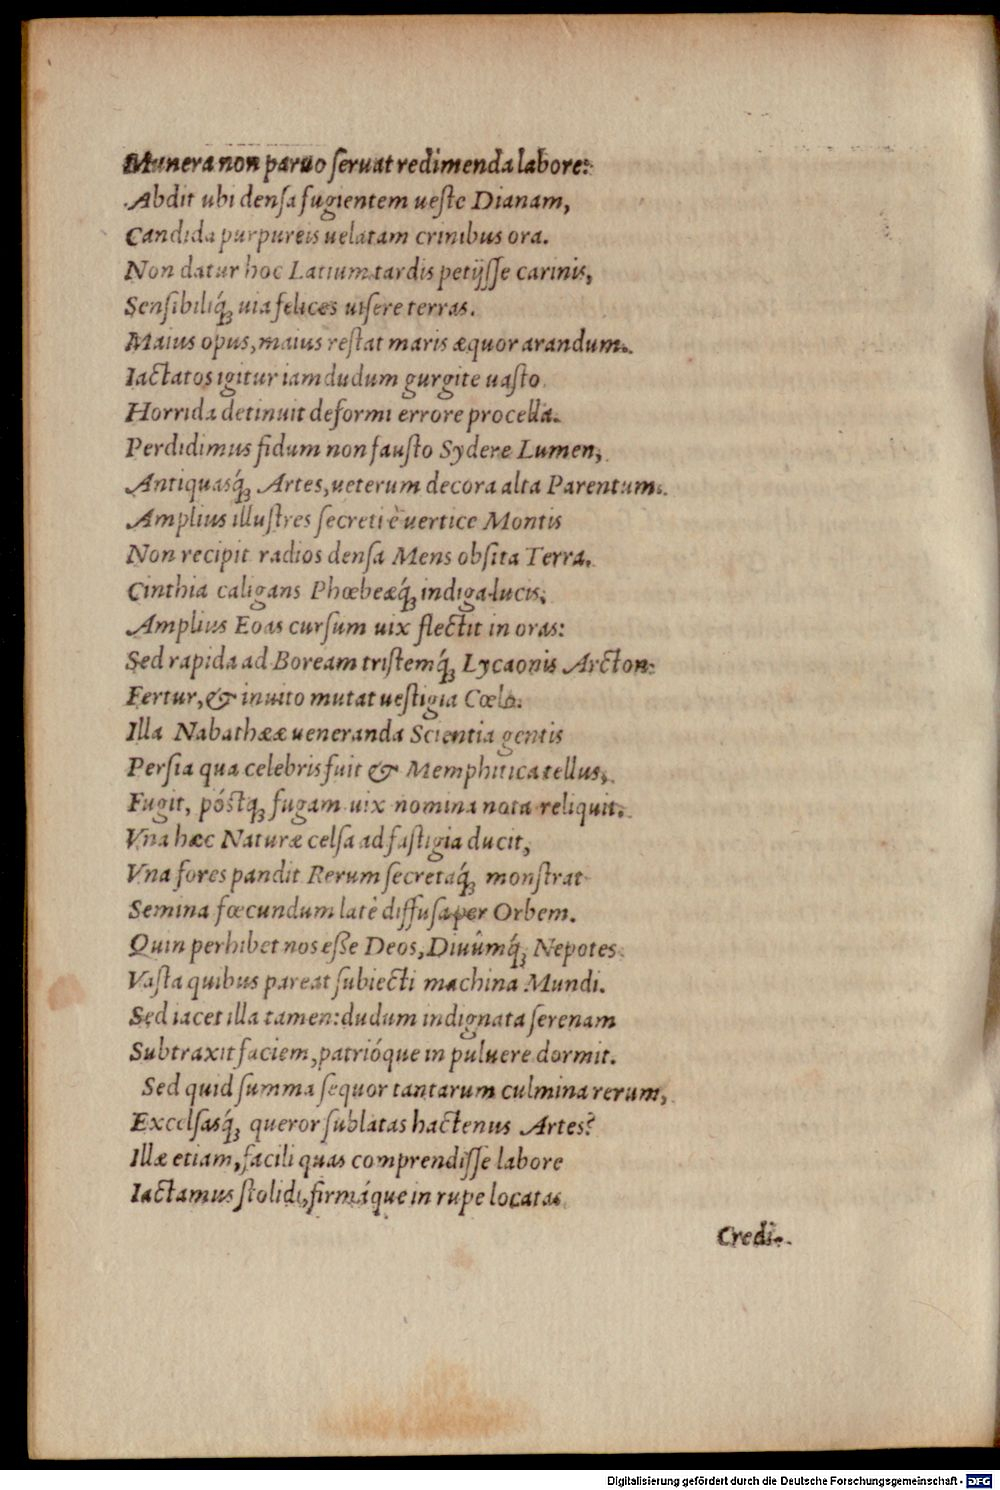 Munera non paruo ſeruat redimenda labore:
Abdit ubi denſa fugientem ueſte Dianam,
Candida purpureis uelatam crinibus ora.
Non datur hoc Latium tardis petijſſe carinis,
Senſibiliq́ꝫ uia felices uiſere terras.
Maius opus, maius reſtat maris æquor arandum.
Iactatos igitur iamdudum gurgite uaſto
Horrida detinuit deformi errore procella.
Perdidimus fidum non fauſto Sydere Lumen,
Antiquasq́ꝫ Artes, ueterum decora alta Parentum.
Amplius illuſtres ſecreti è uertice Montis
Non recipit radios denſa Mens obſita Terra.
Cinthia caligans Phœbeæq́ꝫ indiga lucis,
Amplius Eoas curſum uix flectit in oras:
Sed rapida ad Boream triſtemq́ꝫ Lycaonis Arcton
Fertur, & inuito mutat ueſtigia Cœlo.
Illa Nabathææ ueneranda Scientia gentis
Perſia qua celebris fuit & Memphitica tellus,
Fugit, póſtqꝫ fugam uix nomina nota reliquit.
Vna hæc Naturæ celſa ad faſtigia ducit,
Vna fores pandit Rerum ſecretaq́ꝫ monſtrat
Semina fœcundum latè diffuſa per Orbem.
Quin perhibet nos eſſe Deos, Diuûmq́ꝫ Nepotes
Vaſta quibus pareat ſubiecti machina Mundi.
Sed iacet illa tamen: dudum indignata ſerenam
Subtraxit faciem, patrióque in puluere dormit.
Sed quid ſumma ſequor tantarum culmina rerum,
Excelſasq́ꝫ queror ſublatas hactenus Artes?
Illæ etiam, facili quas comprendiſſe labore
Iactamus ſtolidi, firmáque in rupe locatas
Credi-
Digitalisierung gefördert durch die Deutsche Forschungsgemeinschaft - DFG